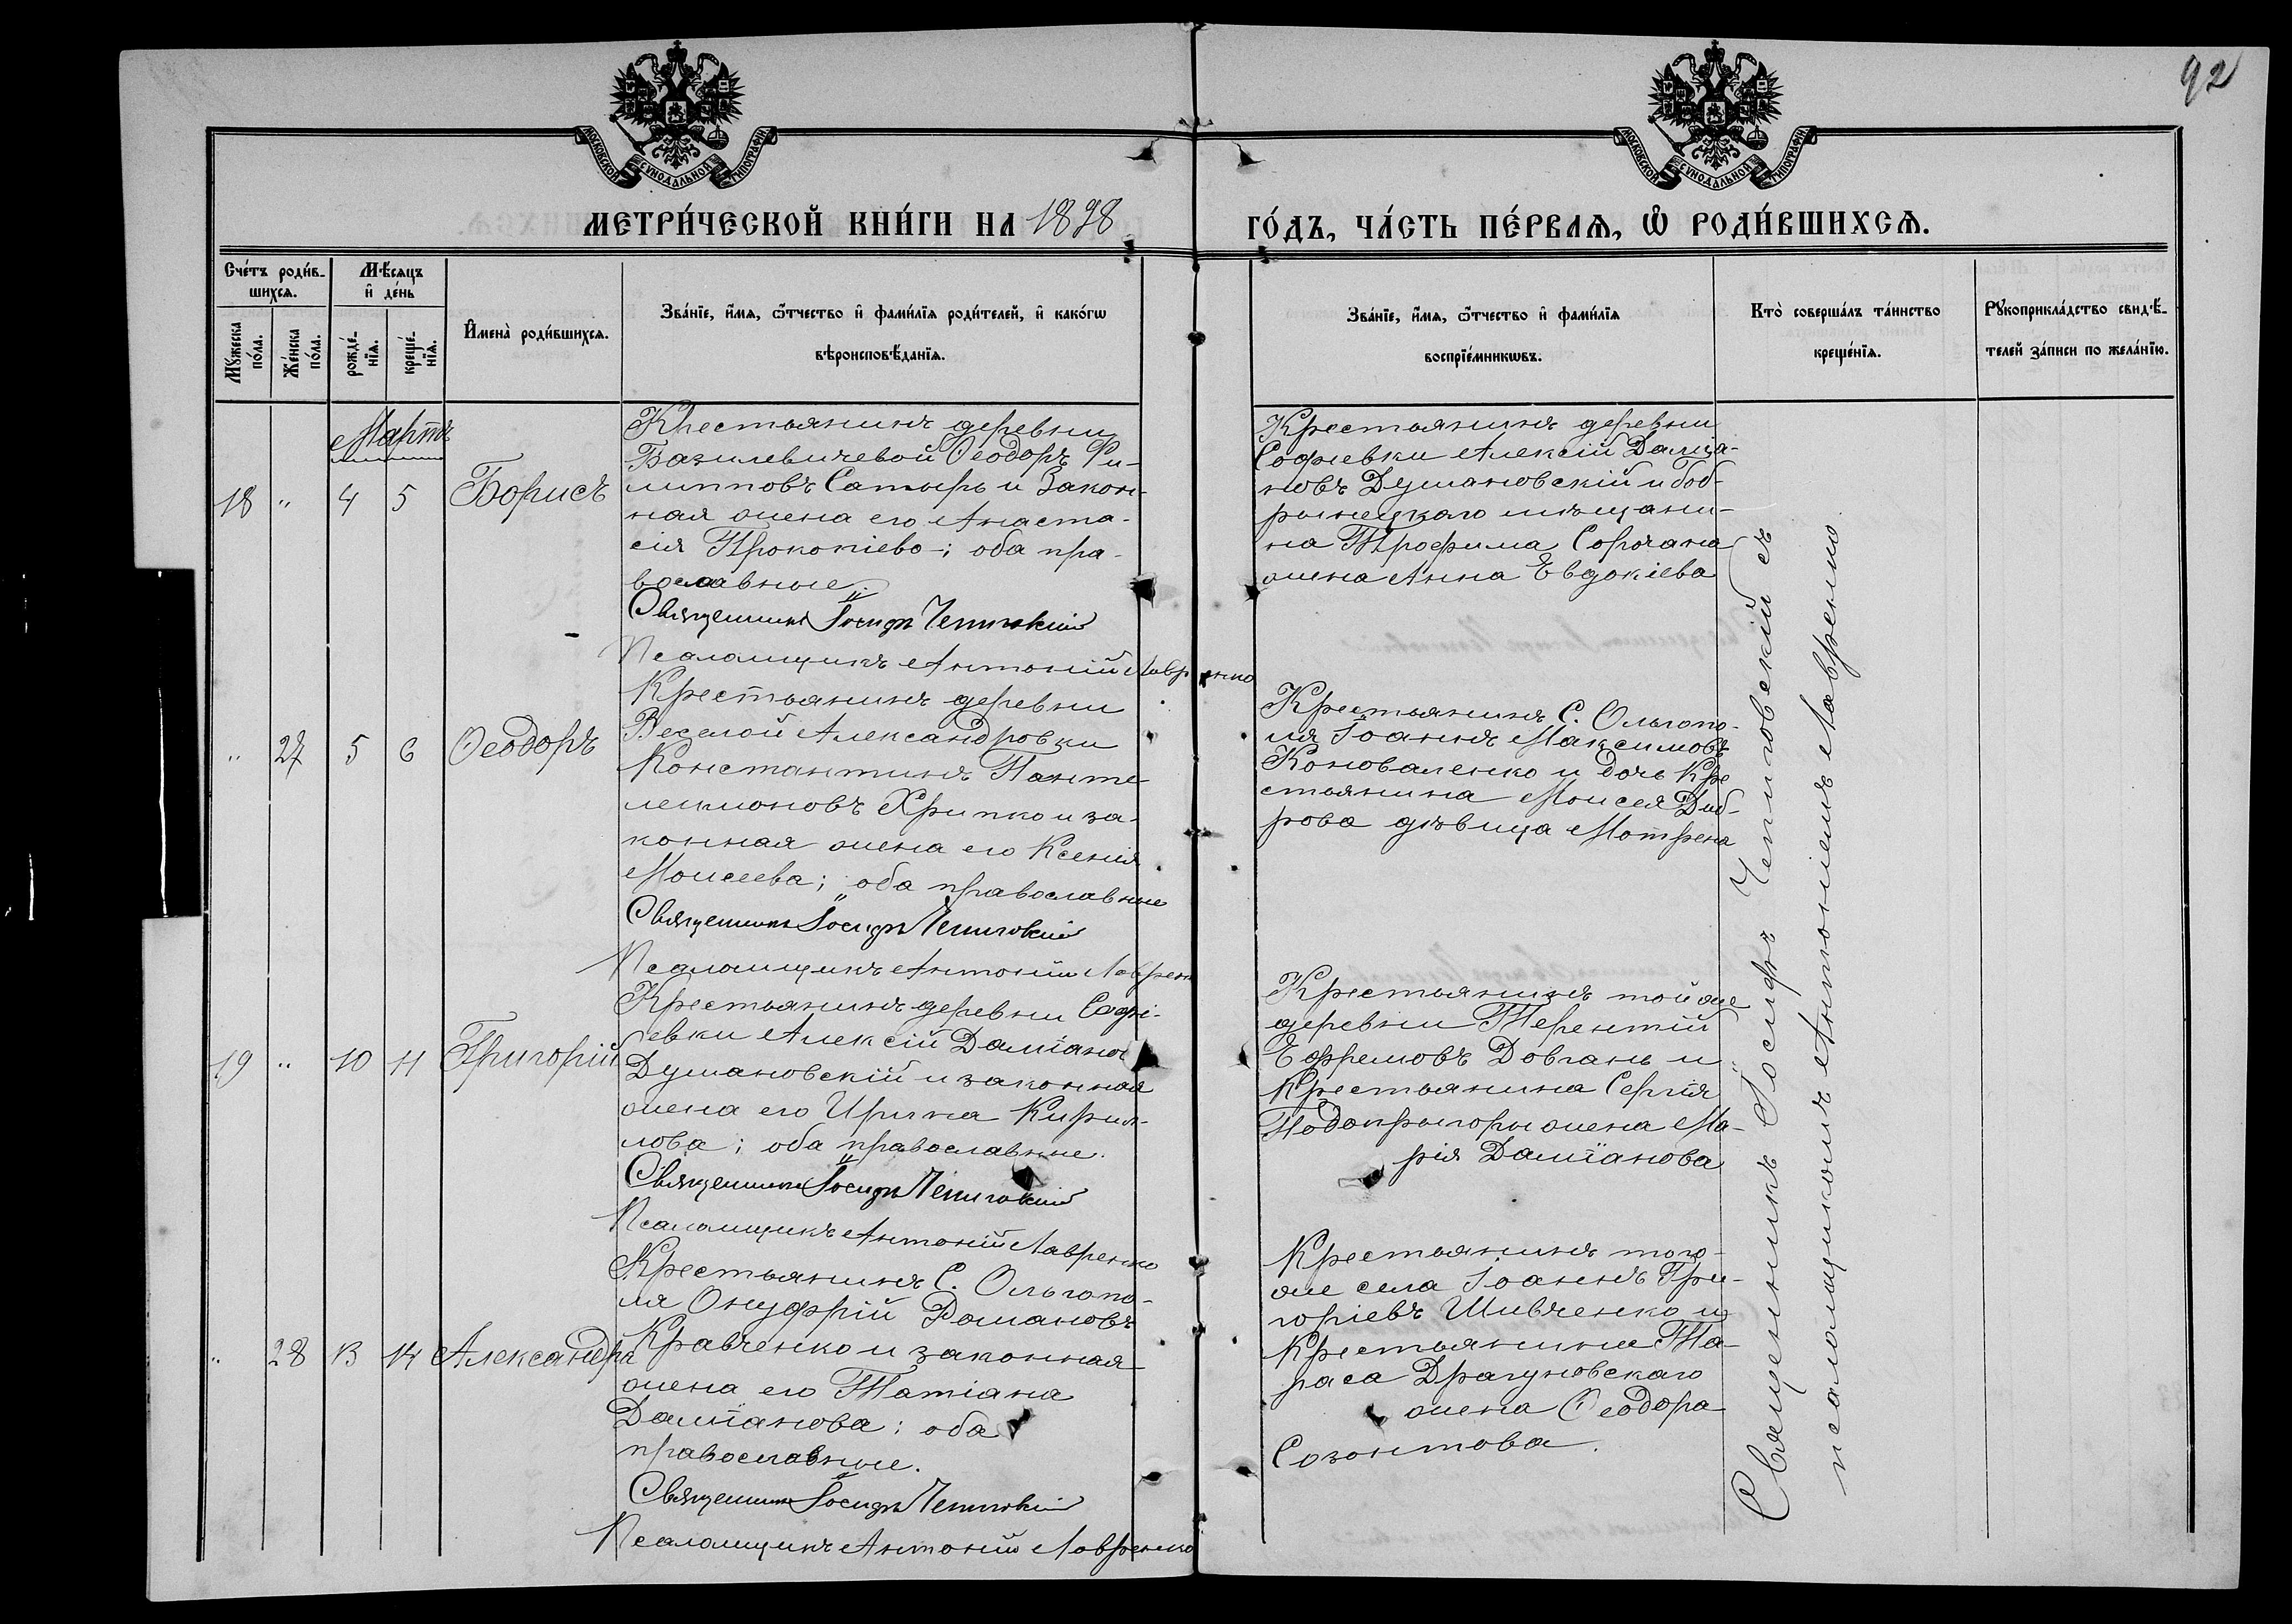 92
МОСКОВСКОЙ СѴНОДАЛЬНОЙ ТИПОГРАФІИ
МОСКОВСКОЙ СѴНОДАЛЬНОЙ ТИПОГРАФІИ
МЕТРИ́ЧЕСКОЙ КНИ́ГИ НА 1898
ГО́ДЪ, ЧА́СТЬ ПЕ́РВАѦ, Ѡ РОДИ́ВШИХСѦ.
Сче́тъ роди́в-
шихсѧ.
Мꙋ́жеска по́ла.
Же́нска по́ла.
Мѣ́сѧцъ
и҆ де́нь
рожде́-
нїѧ.
креще́-
нїѧ.
И҆мена̀ роди́вшихсѧ.
Зва́нїе, и҆́мѧ, ѻ҆́тчество и҆ фами́лїѧ роди́телей, и҆ како́гѡ
вѣроисповѣ́данїѧ.
Зва́нїе, и҆́мѧ, ѻ҆́тчество и҆ фами́лїѧ
воспрїе́мникѡвъ.
Кто̀ соверша́лъ та́инство
креще́нїѧ.
Рꙋкоприкла́дство свидѣ́-
телей за́писи по жела́нїю.
Мартъ
18 " 4 5 Борисъ
Крестьянинъ деревни
Базилевичевой Ѳеодоръ Фи-
липповъ Сатыръ и Закон-
ная жена его Анаста-
сія Прокопіево-; оба пра-
вославные.
Священникъ Іосифъ Чепиговскій
Псаломщикъ Антоній Лавренко
Крестьянинъ деревни
Софіевки Алексій Даміа-
новъ Думановскій и боб-
рынецкаго мѣщани-
на Трофима Сорочана
жена Анна Евдокіева
" 27 5 6 Ѳеодоръ
Крестьянинъ деревни
Веселой Александровки
Константинъ Панте-
леимоновъ Хрипко и за-
конная жена его Ксенія
Моисеева; оба православные
Священникъ Іосифъ Чепиговскій
Псаломщикъ Антоній Лаврен
Крестьянинъ С. Ольгопо-
ля Іоаннъ Максимовъ
Коноваленко и дочь Кре
стьянина Моисея Диб-
рова дѣвица Мотрена
19 " 10 11 Григорій
Крестьянинъ деревни Софі-
евки Алексій Даміановъ
Думановскій и законная
жена его Ирина Кирил-
лова; оба православные.
Священникъ Іосифъ Чепиговскій
Псаломщикъ Антоній Лавренко
Крестьянинъ той же
деревни Терентій
Ефремовъ Довгань и
Крестьянина Сергія
Подопрыгоры жена Ма-
рія Даміанова
" 28 13 14 Александра
Крестьянинъ С. Ольгопо-
ля Онуфрій Романовъ
Кравченко и законная
жена его Татіана
Даміанова; оба
православные.
Священникъ Іосифъ Чепиговскій
Псаломщикъ Антоній Лавренко
Крестьянинъ того-
же села Іоаннъ Гри-
горіевъ Шивченко и
Крестьянина Та-
раса Драгуновскаго
жена Ѳеодора
Созонтова.
Священникъ Іосифъ Чепиговскій съ
псаломщикомъ Антоніемъ Лавренко.